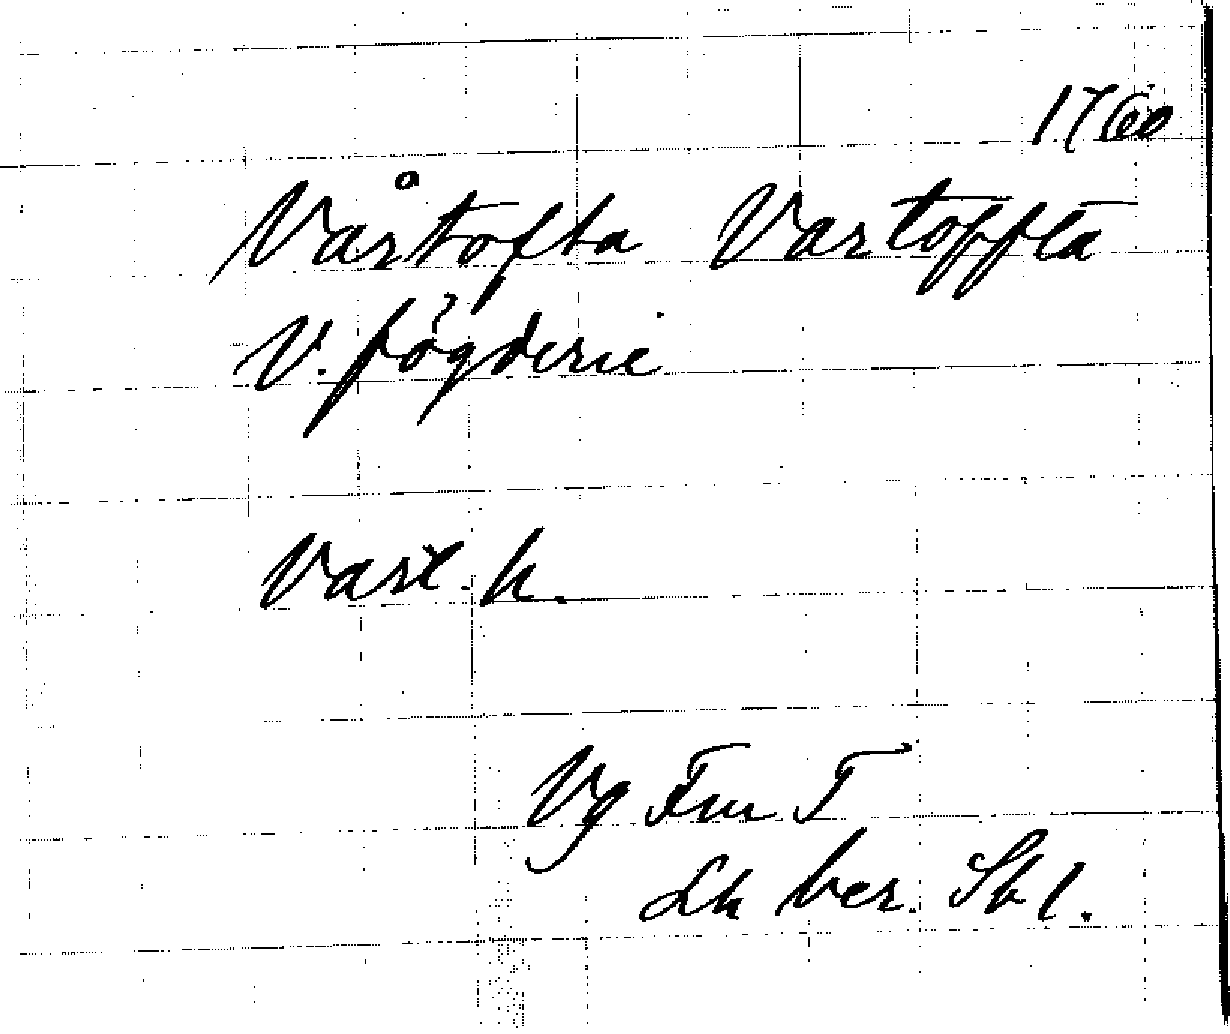 1760
Vårtofta Vartoffta
V. fögderie
Vart. h.
Vg Fm T
Lh ber. Sbl.